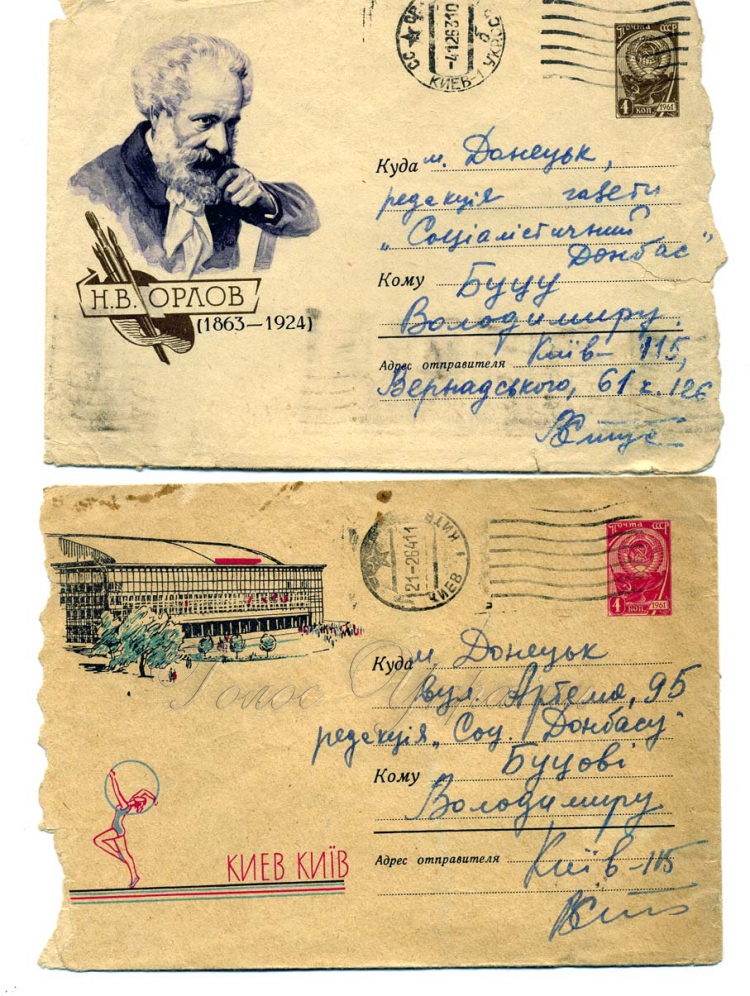 -4126310
КИЕВ-1 УКРССР
ПОЧТА СССР
4 КОП. 1961
Н.В. ОРЛОВ
(1863—1924)
Куда м. Донецьк,
редакція газети
„Соціалістичний
Донбас"
Кому Буцу
Володимиру.
Адрес отправителя Київ-115,
Вернадського, 61 к. 126
21-26411
КИЕВ КИЇВ
ПОЧТА СССР
4 КОП. 1961
Куда м. Донецьк
вул. Артема, 95
редакція „Соц. Донбасу"
Кому Буцові
Володимиру
Адрес отправителя Київ-115
Голос
КИЕВ КИЇВ